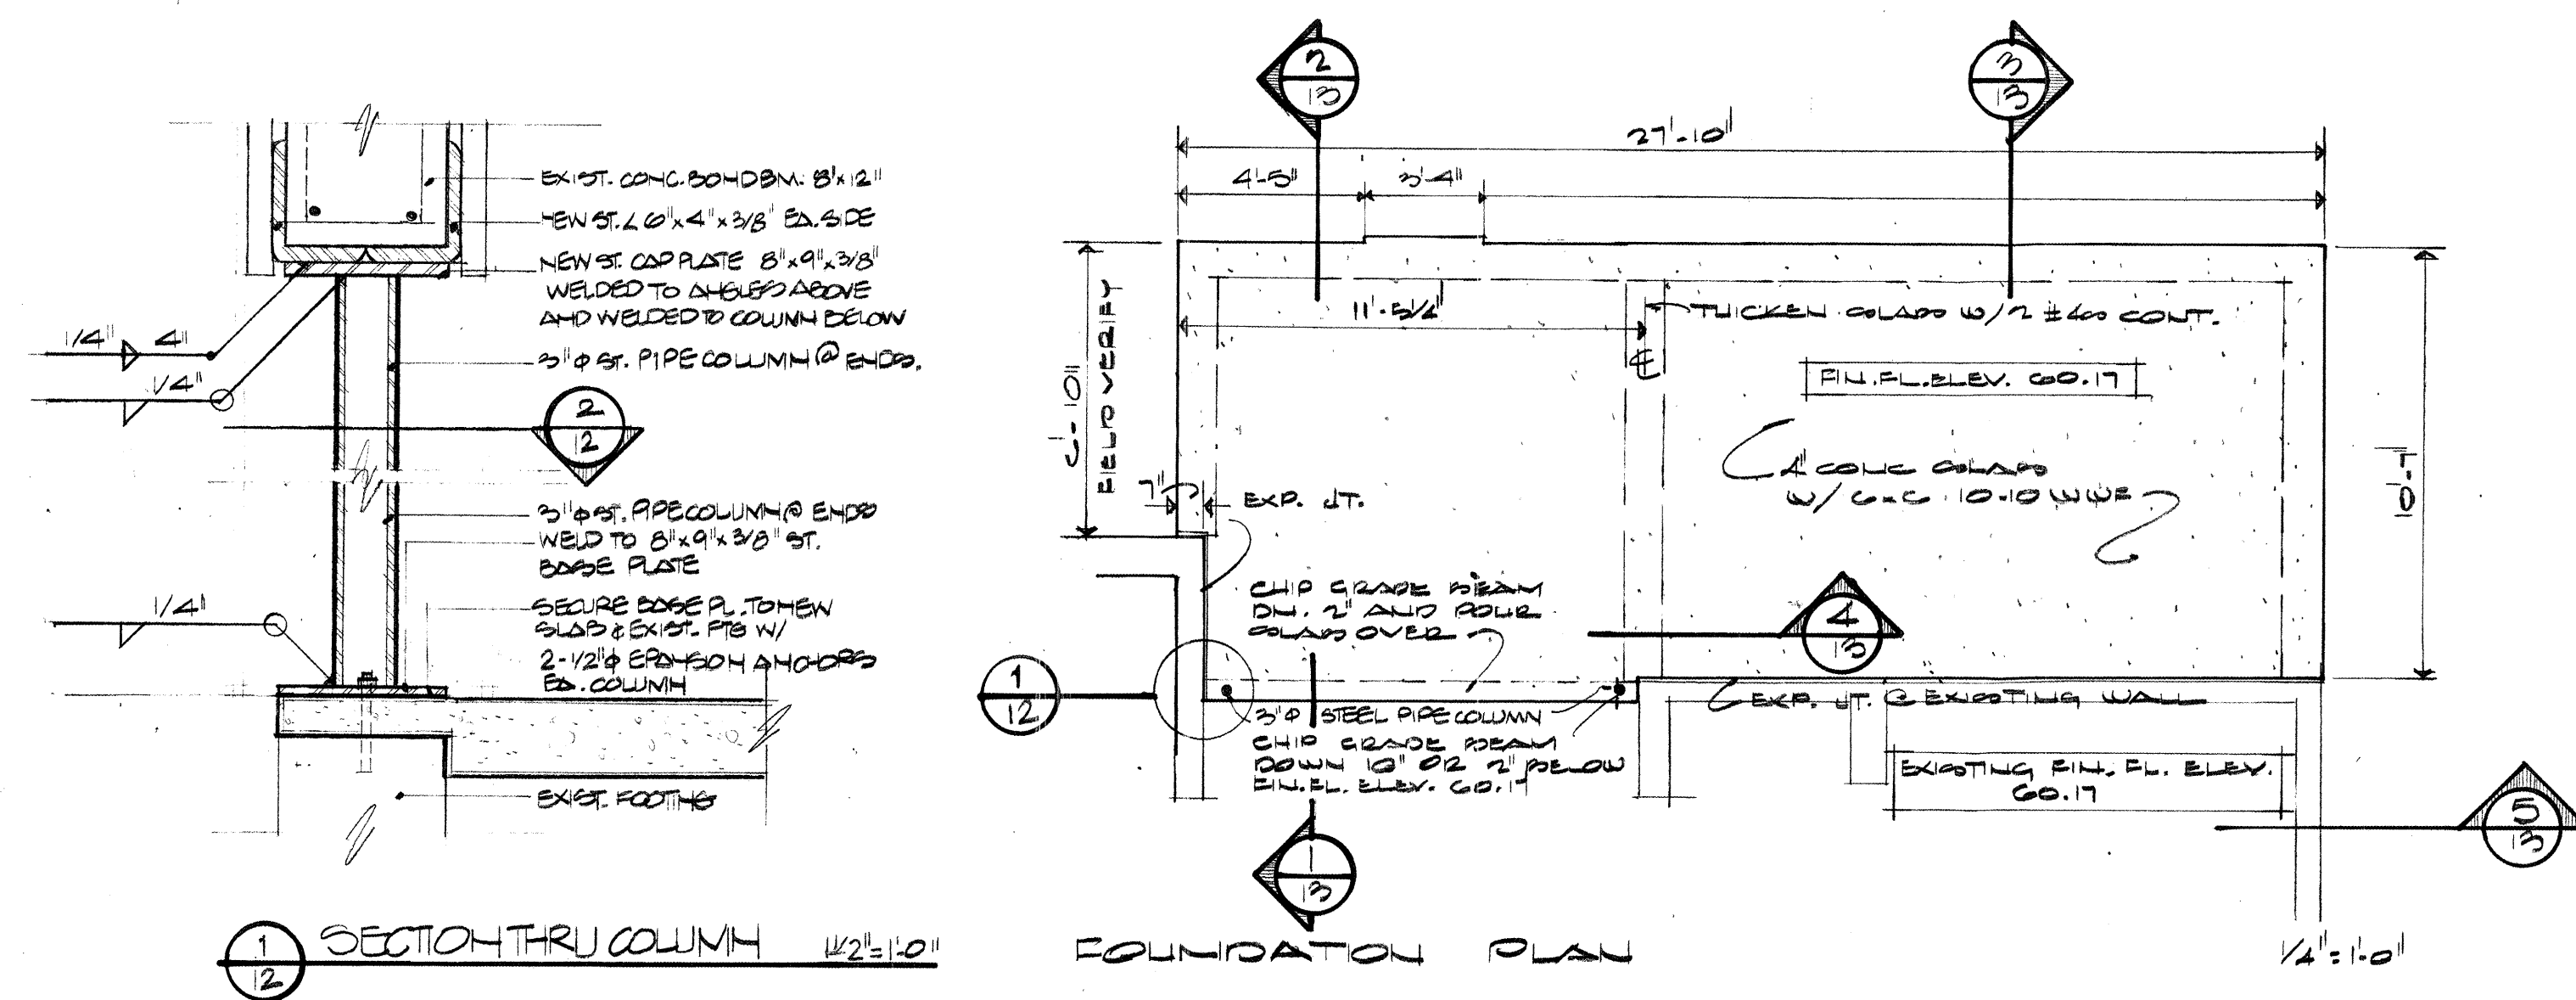 EXIST. CONC. BOND BM. 8"x12"
NEW ST. L 6"x4"x3/8" EA. SIDE
NEW ST. CAP PLATE 8"x9"x3/8"
WELDED TO ANGLES ABOVE
AND WELDED TO COLUMN BELOW
3"φ ST. PIPE COLUMN @ ENDS.
1/4" 4"
1/4"
2
12
3"φ ST. PIPE COLUMN @ ENDS
WELD TO 8"x9"x3/8" ST.
BASE PLATE
SECURE BASE PL. TO NEW
SLAB & EXIST. FTG W/
2-1/2"φ EPANSION ANCHORS
EA. COLUMN
1/4"
EXIST. FOOTING
1
12
SECTION THRU COLUMN
1 1/2"=1'-0"
2
13
3
13
27'-10"
4'-5"
3'-4"
6'-10"
FIELD VERIFY
THICKEN SLAB W/ 2 #4s CONT.
FIN. FL. ELEV. 60.17
4" CONC SLAB
W/ 6x6 10-10 WWF
7"
EXP. JT.
CHIP GRADE BEAM
DN. 2" AND POUR
SLAB OVER
4
13
1
12
3"φ STEEL PIPE COLUMN
CHIP GRADE BEAM
DOWN 10" OR 2" BELOW
FIN. FL. ELEV. 60.17
EXP. JT. @ EXISTING WALL
EXISTING FIN. FL. ELEV.
60.17
5
13
1
13
FOUNDATION PLAN
1/4"=1'-0"